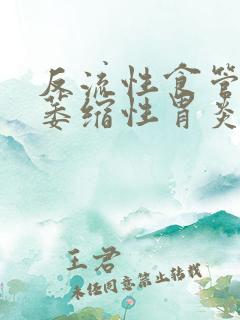 反流性食管
萎缩性胃炎
王君
未经同意禁止转载